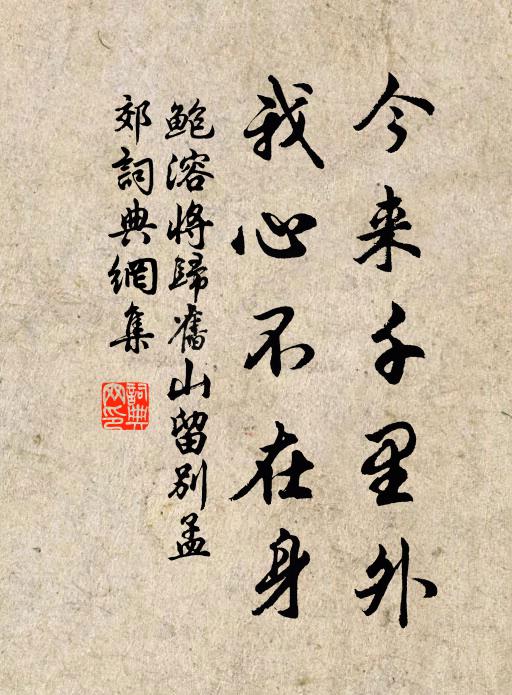 今来千里外
我心不在身
鲍溶将歸舊山留别孟
郊詞典網集
詞典
网印